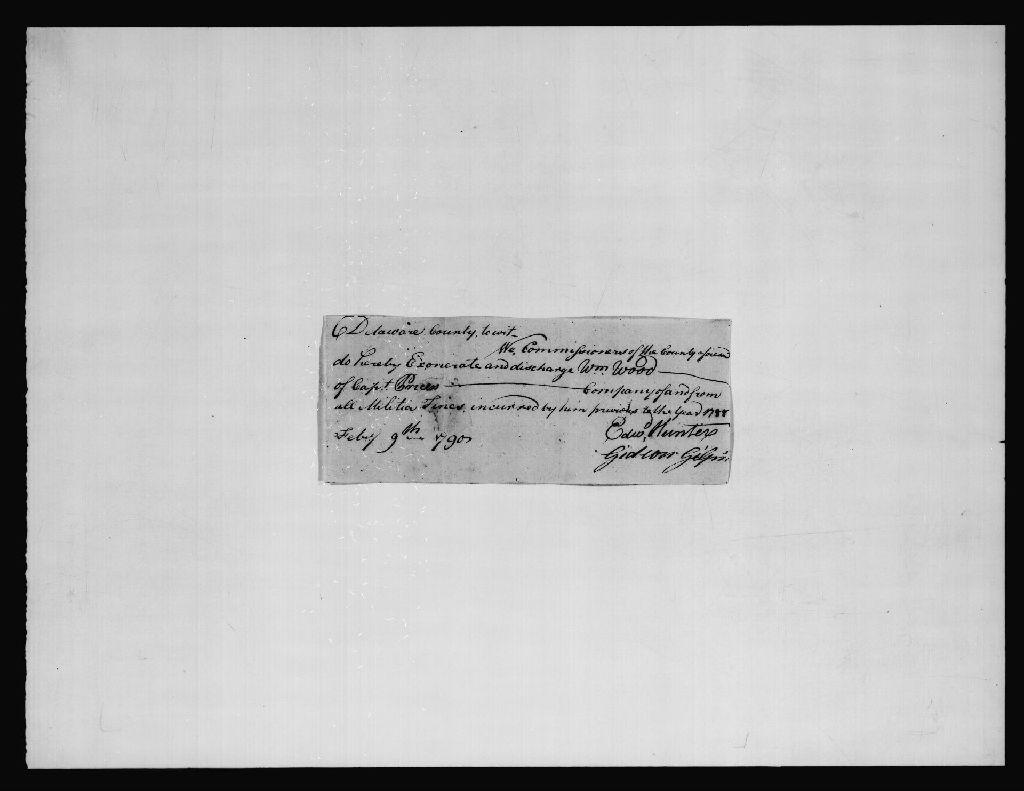 Delaware County, towit
We, Commissioners of the County aforesaid
do hereby Exonerate and discharge Wm Wood
of Capt. Prices Company of and from
all Militia Fines, incurred by him previous to the Year 1788
Feby 9th 1790
Edwd Hunter
Gideon Gilpin